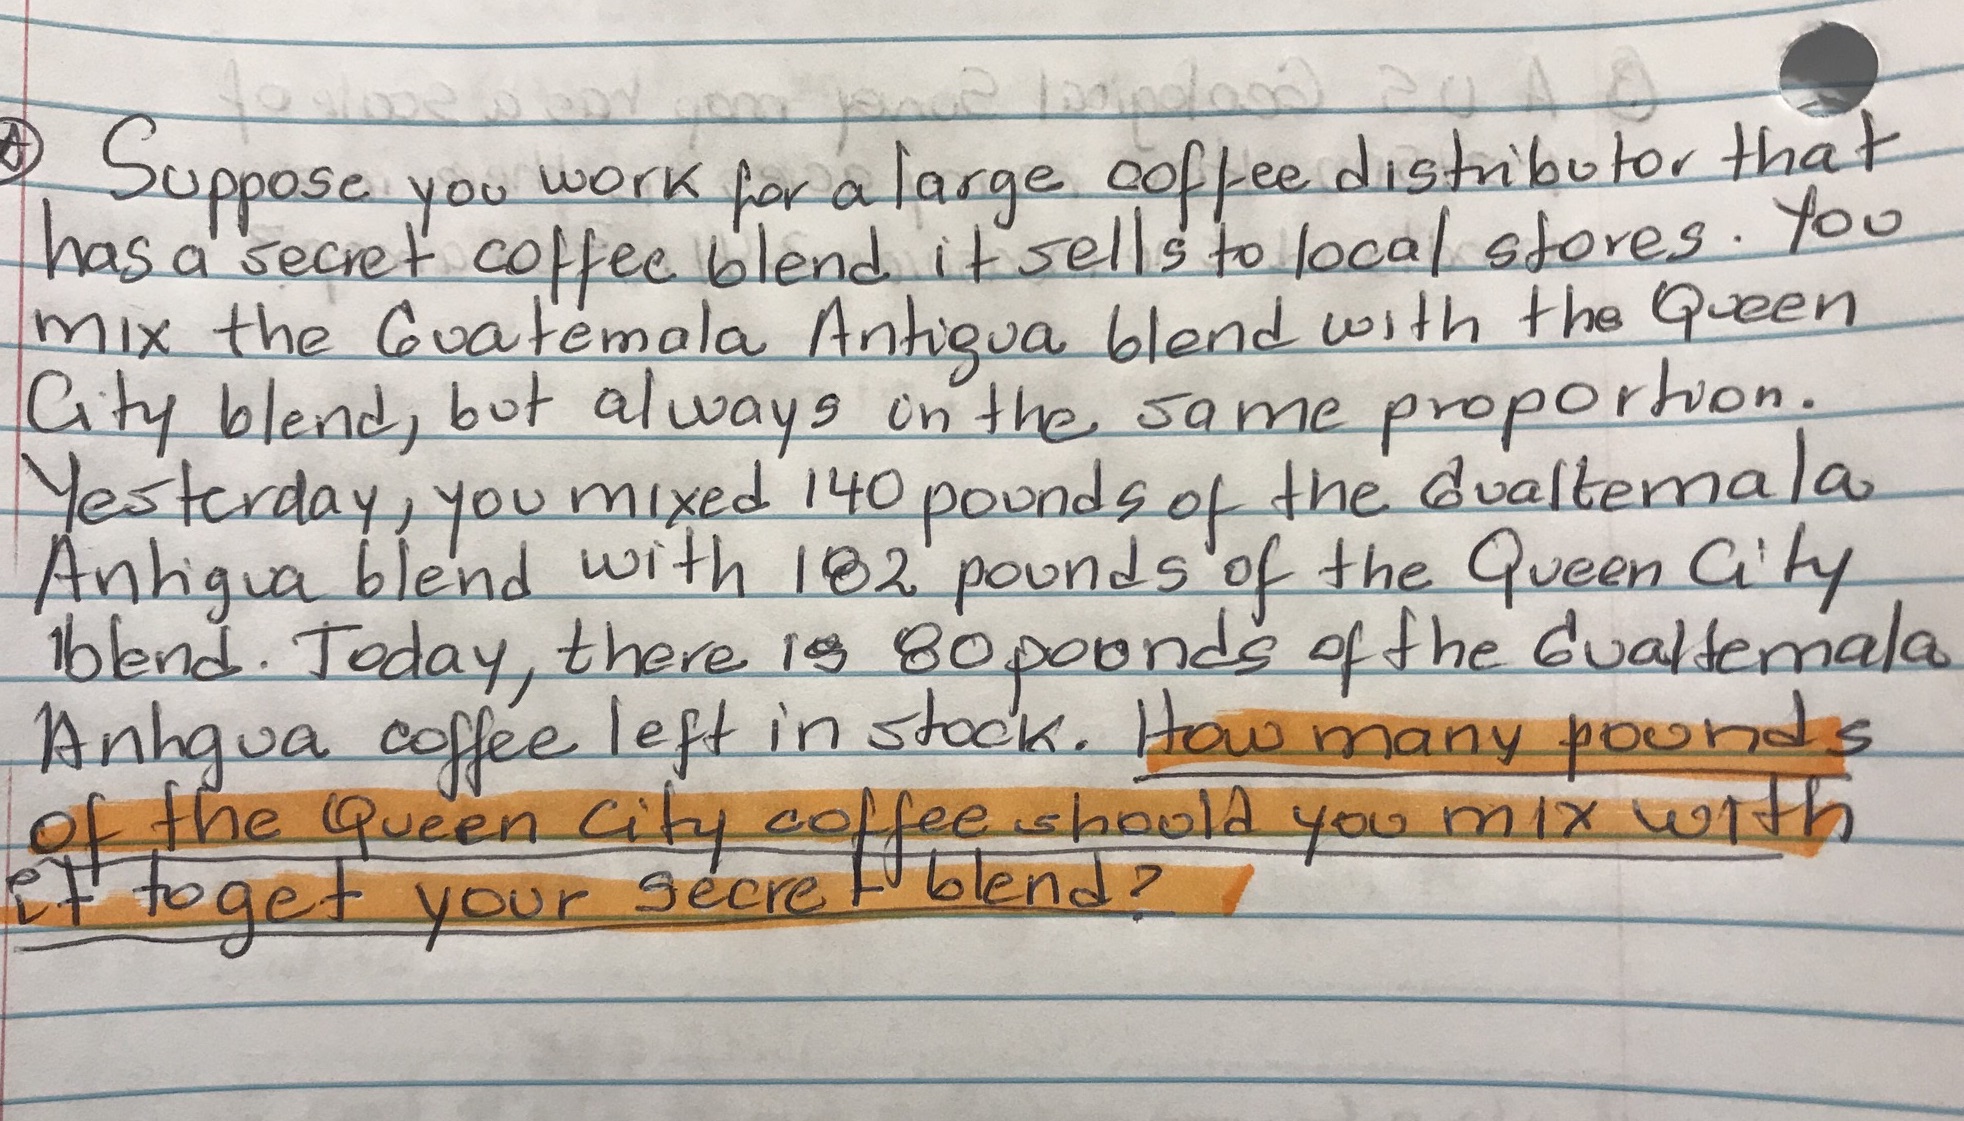 Ⓐ Suppose you work for a large coffee distributor that
has a secret coffee blend it sells to local stores. You
mix the Guatemala Antigua blend with the Queen
City blend, but always in the same proportion.
Yesterday, you mixed 140 pounds of the Gualtemala
Antigua blend with 182 pounds of the Queen City
blend. Today, there is 80 pounds of the Gualtemala
Antigua coffee left in stock. How many pounds
of the Queen City coffee should you mix with
it to get your secret blend?